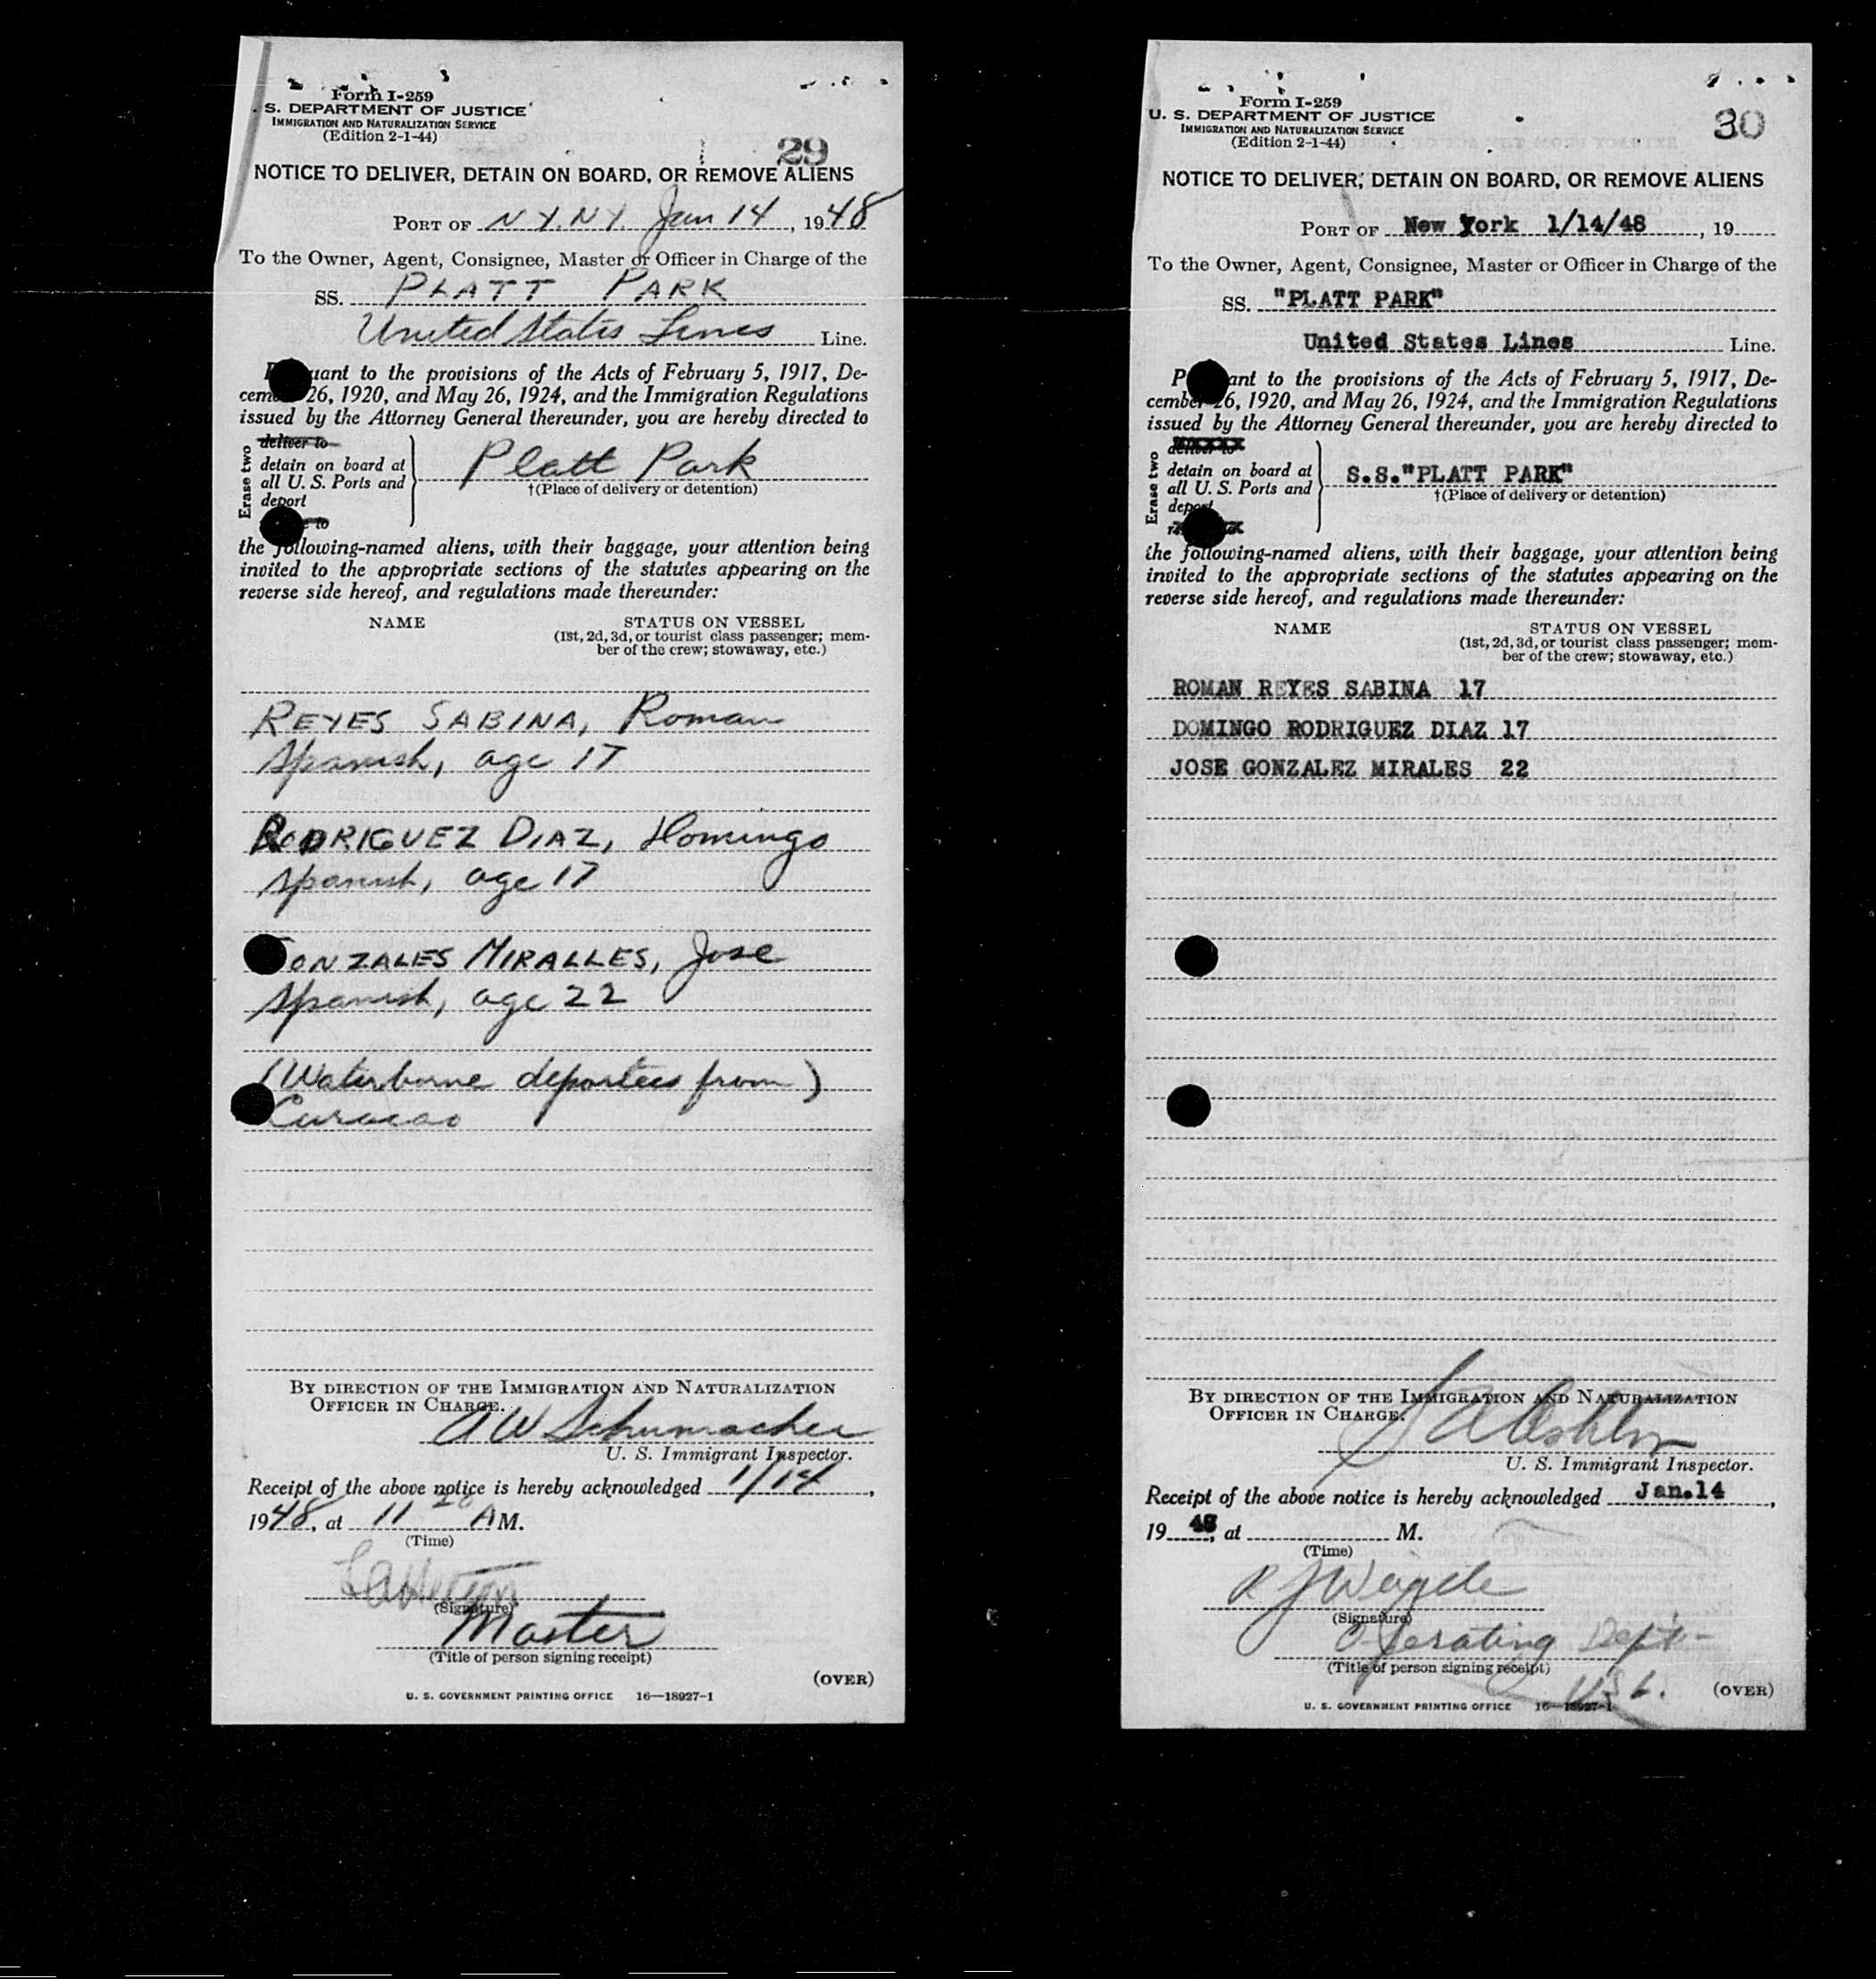 Form I-259
S. DEPARTMENT OF JUSTICE
IMMIGRATION AND NATURALIZATION SERVICE
(Edition 2-1-44)
29
NOTICE TO DELIVER, DETAIN ON BOARD, OR REMOVE ALIENS
PORT OF N.Y. N.Y. Jan 14, 1948
To the Owner, Agent, Consignee, Master or Officer in Charge of the
SS. PLATT PARK
United States Lines Line.
uant to the provisions of the Acts of February 5, 1917, De-
cem 26, 1920, and May 26, 1924, and the Immigration Regulations
issued by the Attorney General thereunder, you are hereby directed to
Erase two
deliver to
detain on board at
all U. S. Ports and
deport
to
Platt Park
†(Place of delivery or detention)
the following-named aliens, with their baggage, your attention being
invited to the appropriate sections of the statutes appearing on the
reverse side hereof, and regulations made thereunder:
NAME STATUS ON VESSEL
(1st, 2d, 3d, or tourist class passenger; mem-
ber of the crew; stowaway, etc.)
REYES SABINA, Roman
Spanish, age 17
RODRIGUEZ DIAZ, Domingo
Spanish, age 17
ONZALES MIRALLES, Jose
Spanish, age 22
(Waterborne deportees from)
Curacao
BY DIRECTION OF THE IMMIGRATION AND NATURALIZATION
OFFICER IN CHARGE.
A W Schumacher
U. S. Immigrant Inspector.
Receipt of the above notice is hereby acknowledged 1/14,
1948, at 11 20 A M.
(Time)
(Signature)
Master
(Title of person signing receipt)
(OVER)
U. S. GOVERNMENT PRINTING OFFICE 16—18927-1
Form I-259
U. S. DEPARTMENT OF JUSTICE
IMMIGRATION AND NATURALIZATION SERVICE
(Edition 2-1-44)
30
NOTICE TO DELIVER, DETAIN ON BOARD, OR REMOVE ALIENS
PORT OF New York 1/14/48, 19
To the Owner, Agent, Consignee, Master or Officer in Charge of the
SS. "PLATT PARK"
United States Lines Line.
P ant to the provisions of the Acts of February 5, 1917, De-
cember 26, 1920, and May 26, 1924, and the Immigration Regulations
issued by the Attorney General thereunder, you are hereby directed to
Erase two
deliver to
detain on board at
all U. S. Ports and
deport
S.S."PLATT PARK"
†(Place of delivery or detention)
the following-named aliens, with their baggage, your attention being
invited to the appropriate sections of the statutes appearing on the
reverse side hereof, and regulations made thereunder:
NAME STATUS ON VESSEL
(1st, 2d, 3d, or tourist class passenger; mem-
ber of the crew; stowaway, etc.)
ROMAN REYES SABINA 17
DOMINGO RODRIGUEZ DIAZ 17
JOSE GONZALEZ MIRALES 22
BY DIRECTION OF THE IMMIGRATION AND NATURALIZATION
OFFICER IN CHARGE.
U. S. Immigrant Inspector.
Receipt of the above notice is hereby acknowledged Jan.14,
19 48, at M.
(Time)
(Signature)
Operating Dept-
(Title of person signing receipt)
U.S.L.
(OVER)
U. S. GOVERNMENT PRINTING OFFICE 16—18927-1